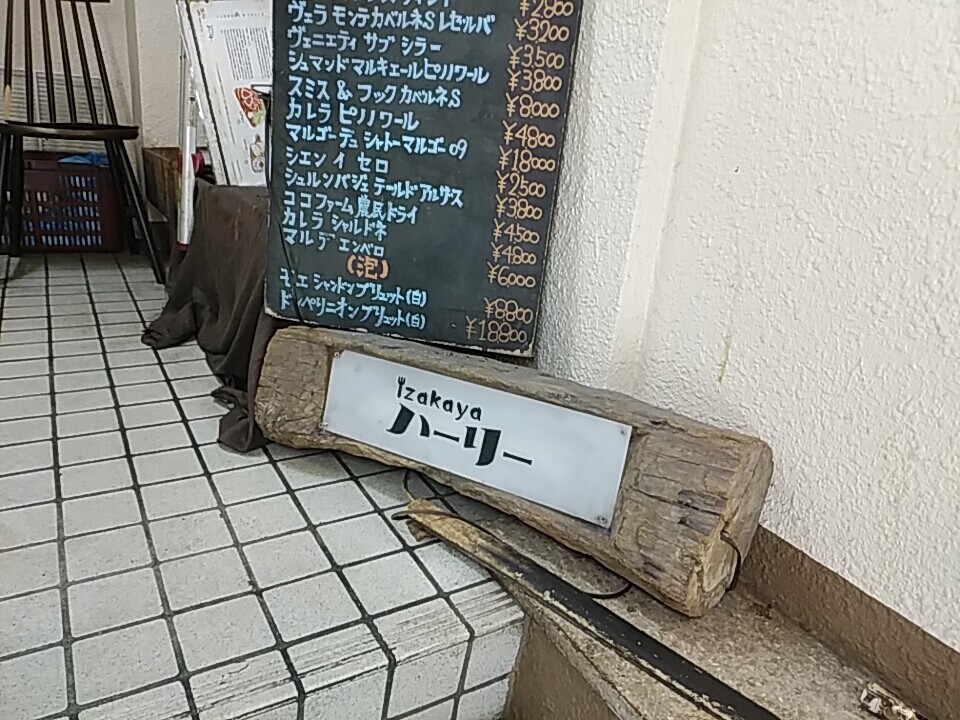 ¥2800
ヴェラ モンテカベルネS レセルバ ¥3200
ヴェニェティ サブ シラー ¥3,500
シュマンドマルキエールピノノワール ¥3,800
スミス & フックカベルネS ¥8,000
カレラ ピノノワール ¥4800
マルゴーデュ シャトーマルゴー09 ¥18000
シエン イ セロ ¥2,500
シュルンバジェ テールド アルザス ¥3,800
ココファーム農民ドライ ¥4,500
カレラ シャルドネ ¥4,800
マルデ エンベロ ¥6000
(泡)
モエ シャンドンブリュット(白) ¥8800
ドンペリニオン ブリュット(白) ¥18800
izakaya
ハーリー